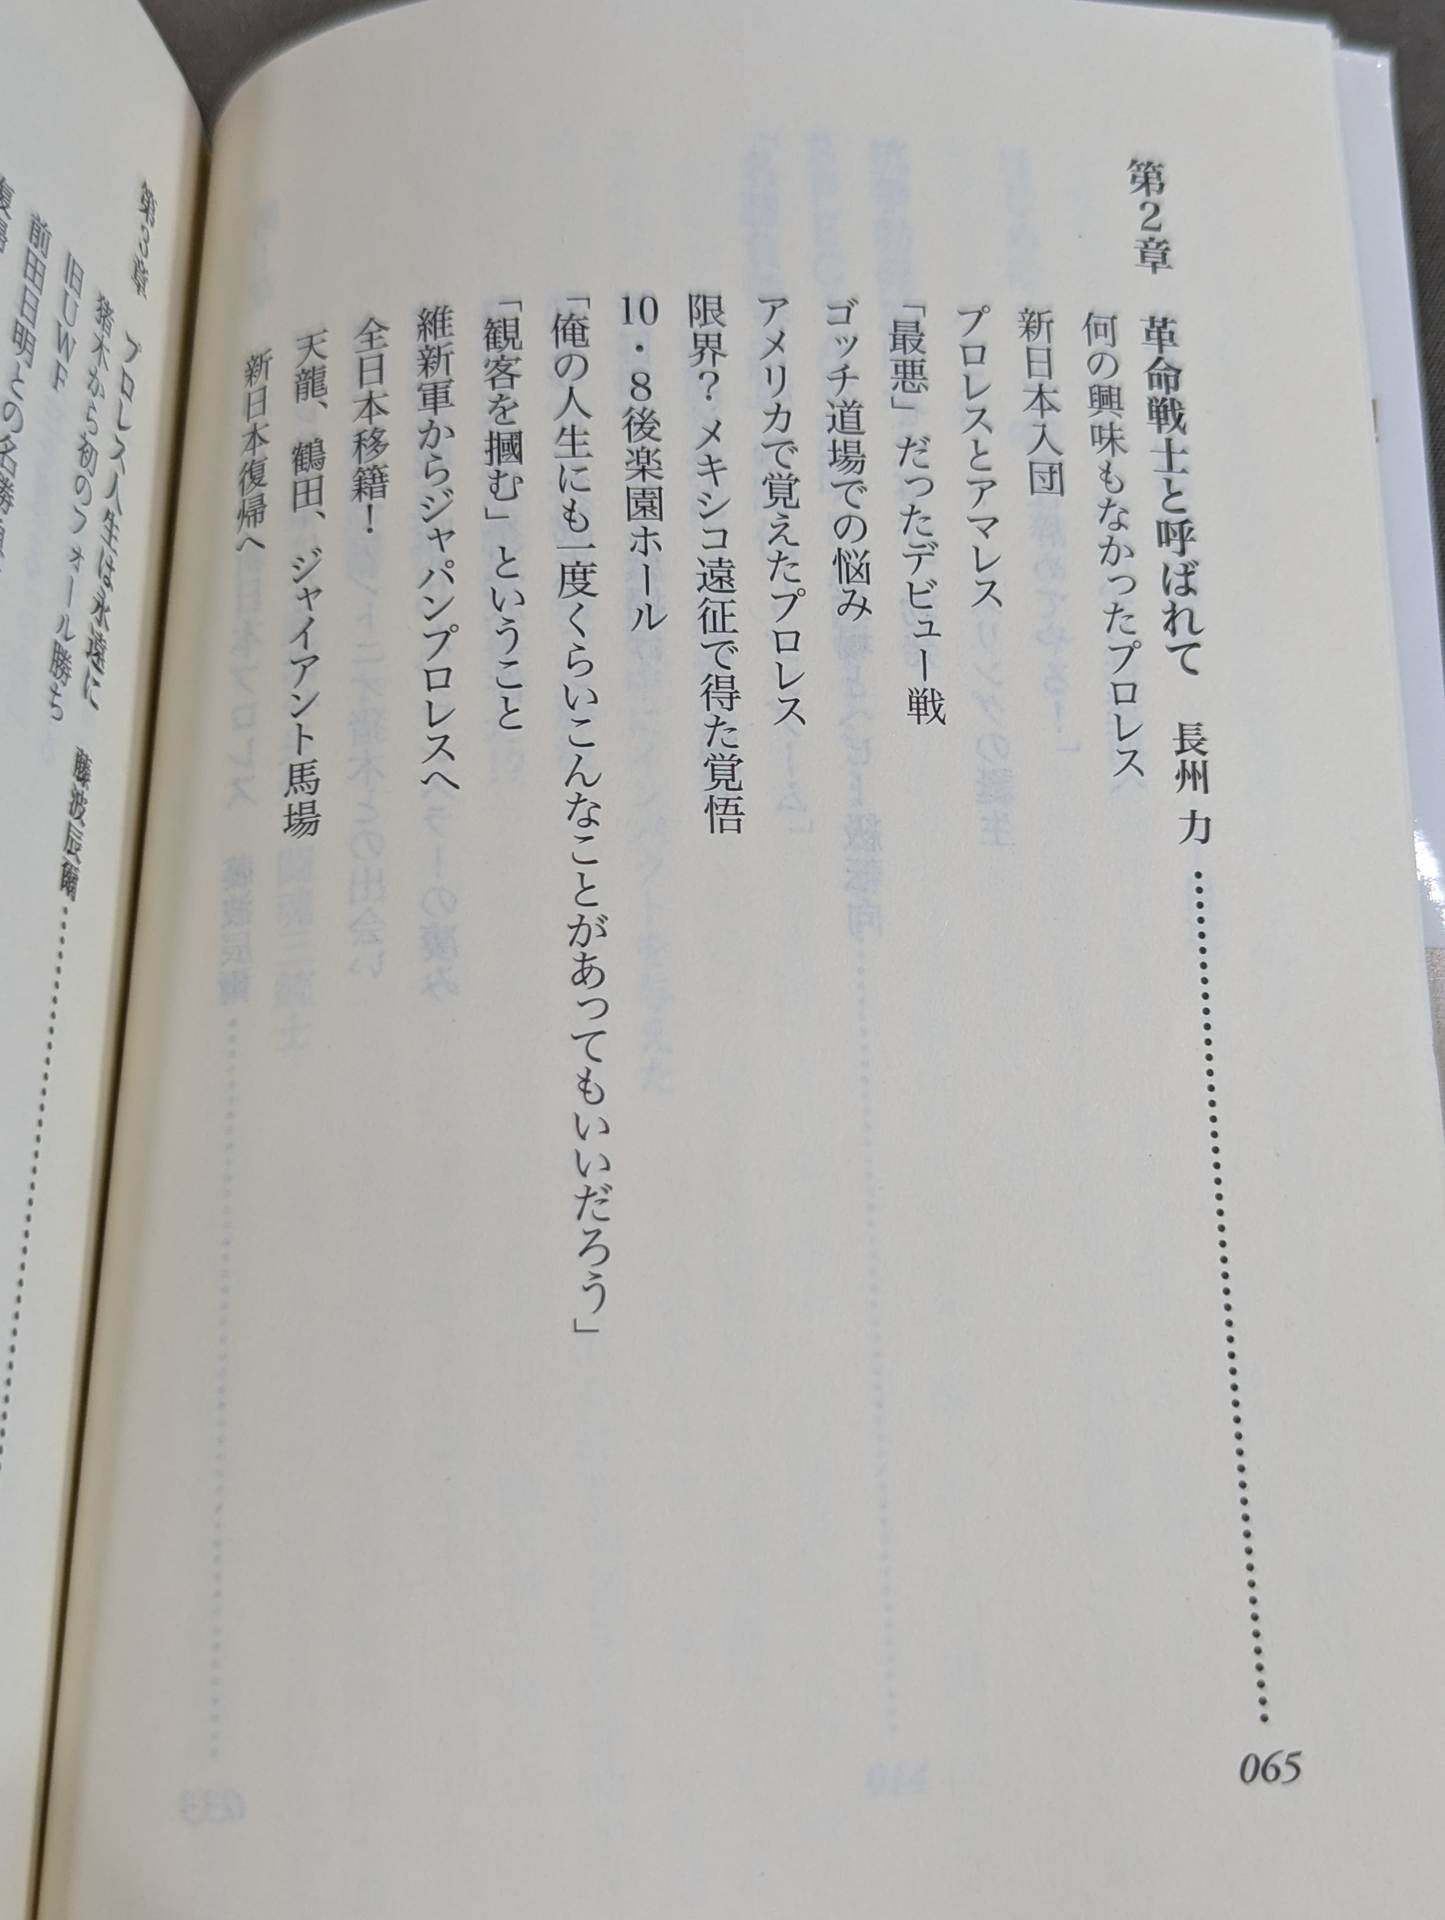 第2章 革命戦士と呼ばれて 長州 力 065
何の興味もなかったプロレス
新日本入団
プロレスとアマレス
「最悪」だったデビュー戦
ゴッチ道場での悩み
アメリカで覚えたプロレス
限界? メキシコ遠征で得た覚悟
10・8後楽園ホール
「俺の人生にも一度くらいこんなことがあってもいいだろう」
「観客を摑む」ということ
維新軍からジャパンプロレスへ
全日本移籍!
天龍、鶴田、ジャイアント馬場
新日本復帰へ
第3章 プロレス人生は永遠に 藤波辰爾
猪木から初のフォール勝ち
旧UWF
前田日明との名勝負